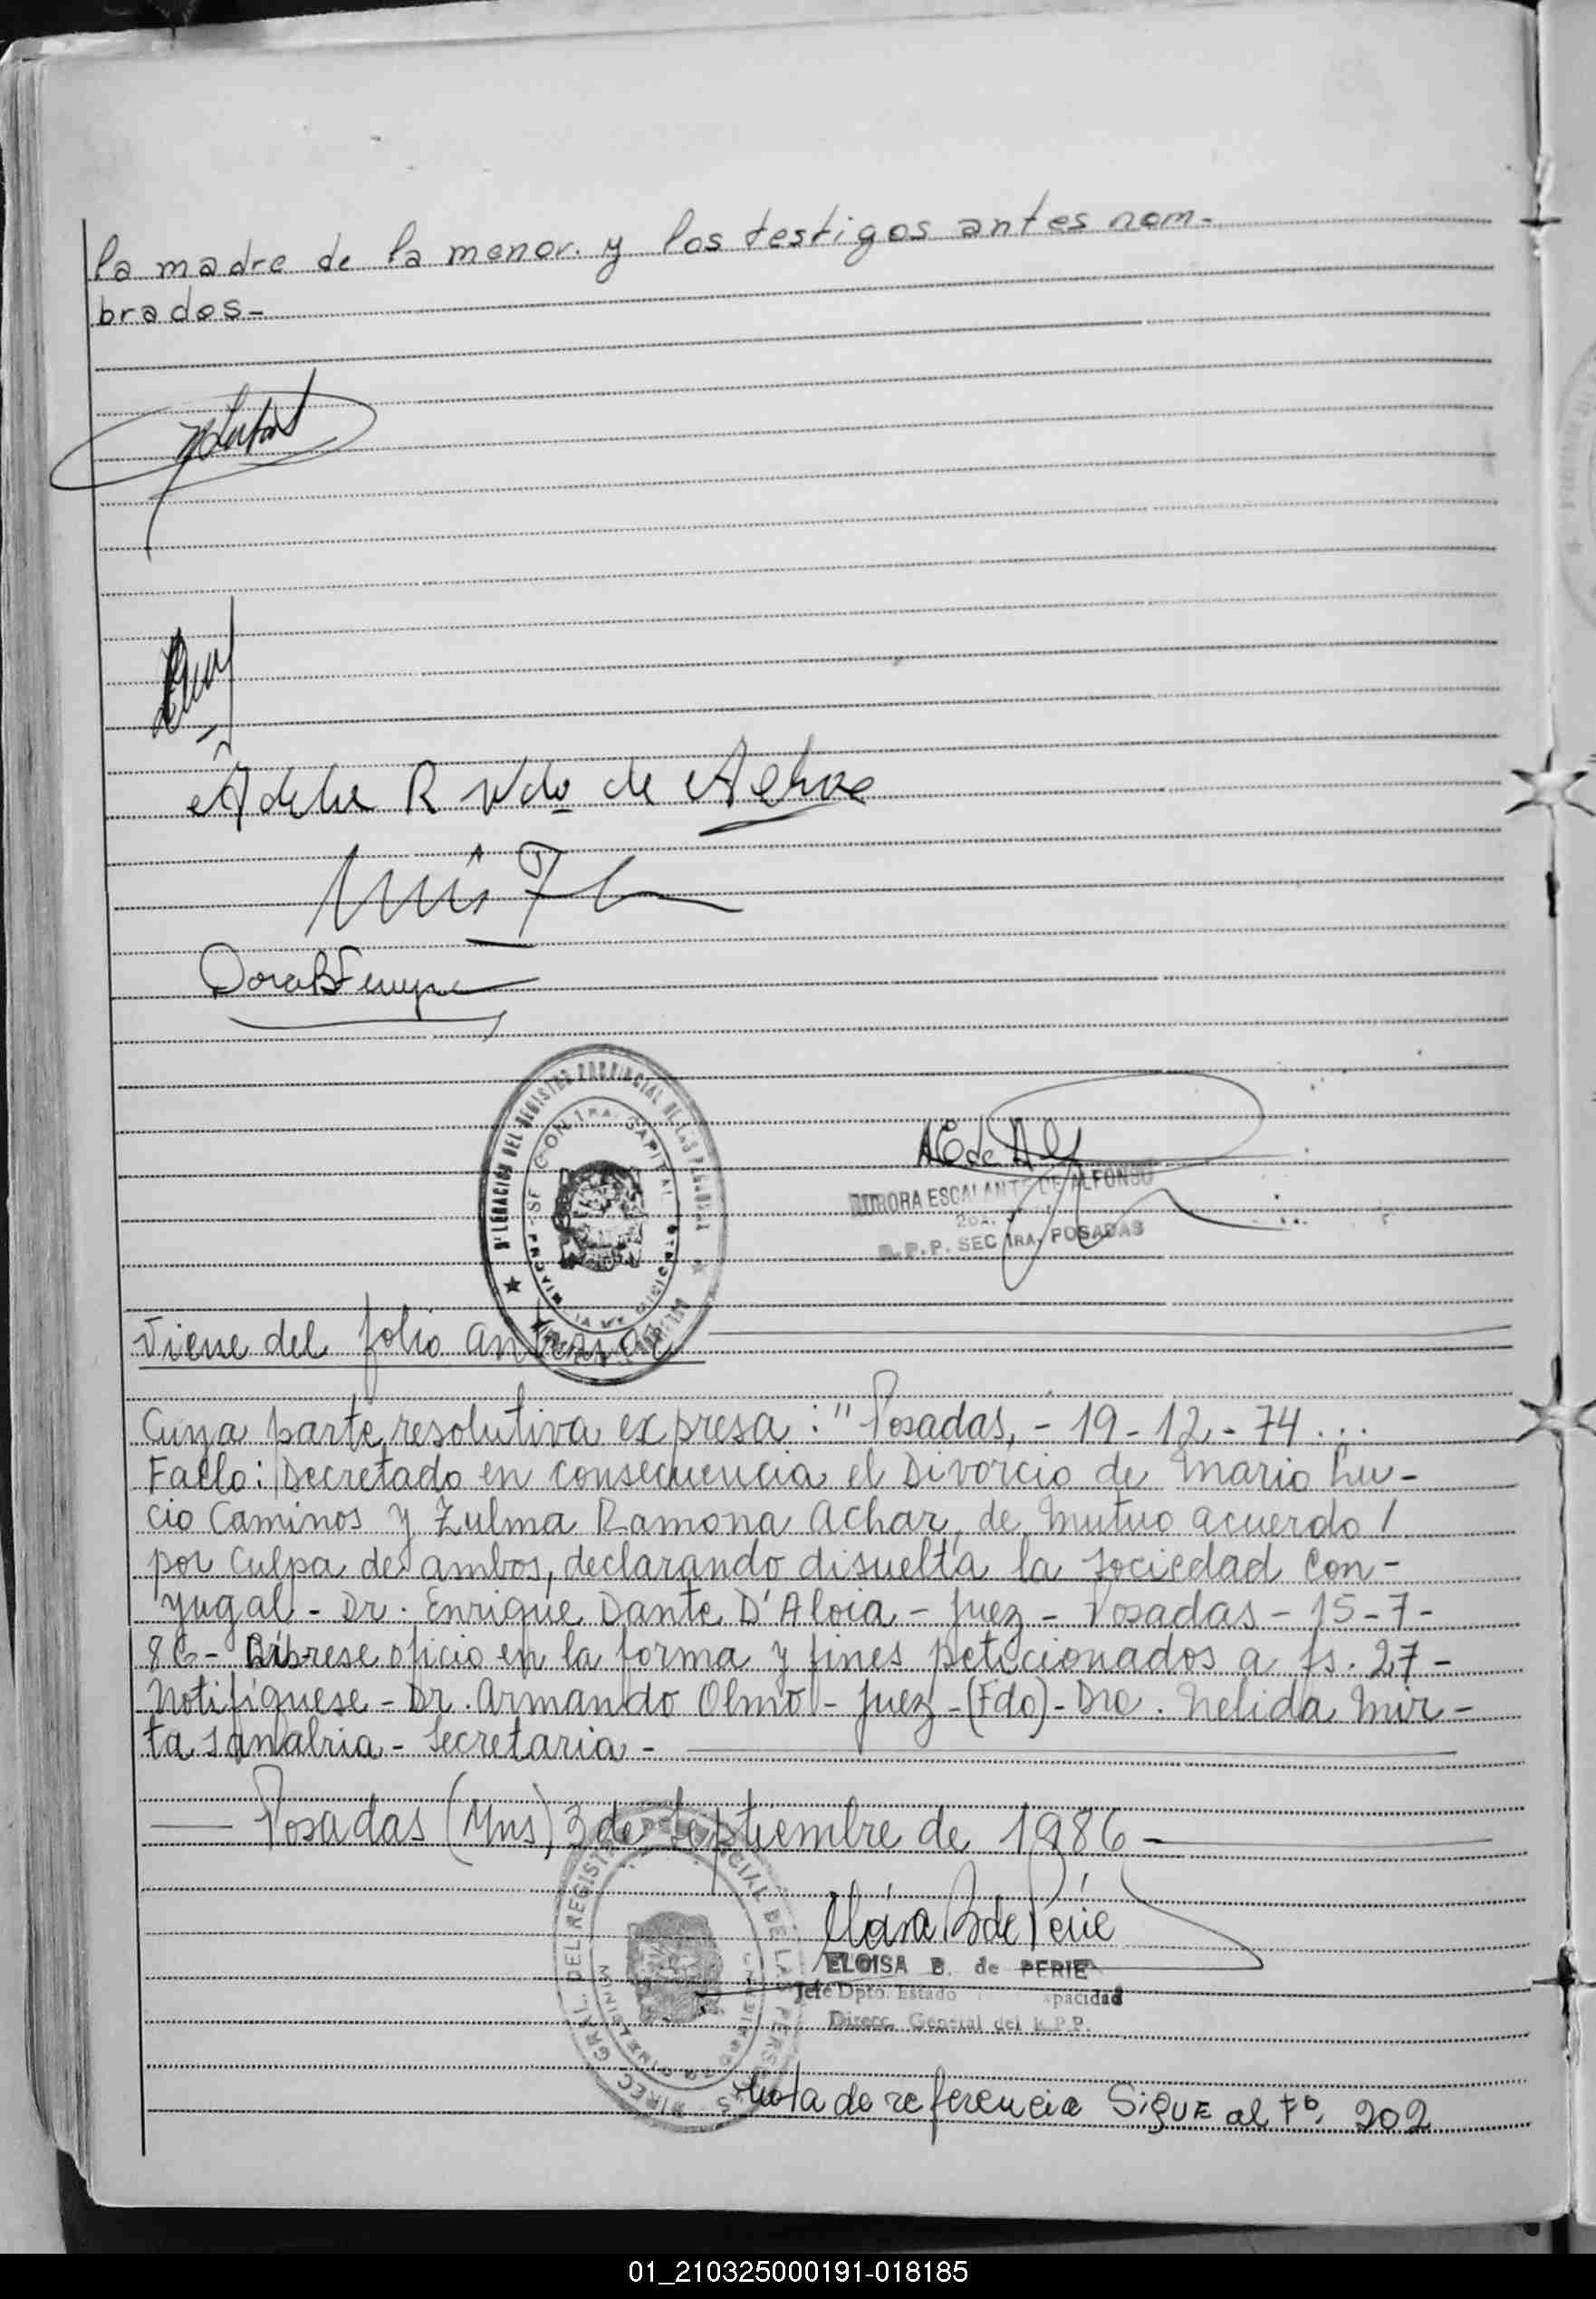 la madre de la menor. y los testigos antes nom-
brados-
Adelia R Vda de Achar
Luis F
Dora B
DEL REGISTRO PROVINCIAL DE LAS PERSONAS
CAPITAL
AURORA ESCALANTE DE ALFONSO
R.P.P. SEC 1RA. POSADAS
Viene del folio anterior
Cuya parte resolutiva expresa: "Posadas, - 19-12-74 ...
Fallo: Decretado en consecuencia el Divorcio de Mario Lu-
cio Caminos y Zulma Ramona Achar, de mutuo acuerdo /
por culpa de ambos, declarando disuelta la sociedad con-
yugal - Dr. Enrique Dante D'Aloia - Juez - Posadas - 15-7-
86 - Líbrese oficio en la forma y fines peticionados a fs. 27 -
Notifíquese - Dr. Armando Olmo - Juez - (Fdo) - Dra. Nelida Mir-
ta Sanabria - Secretaria -
Posadas (Mns) 3 de Septiembre de 1986 -
DIREC. GRAL. DEL REGISTRO PROVINCIAL DE LAS PERSONAS
ELOISA B. de PERIE
Jefe Dpto. Estado pacidad
Direcc. General del R.P.P.
Nota de referencia SiGUE al Fº. 202
01_210325000191-018185